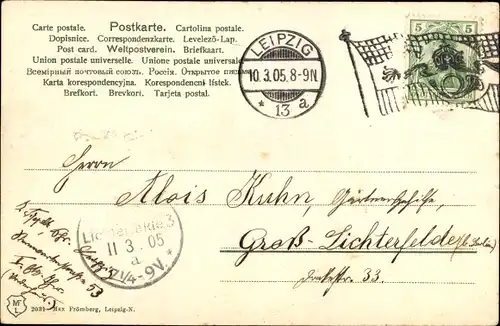 Carte postale. Postkarte. Cartolina postale.
Dopisnice. Correspondenzkarte. Levelező-Lap.
Post card. Weltpostverein. Briefkaart.
Union postale universelle. Unione postale universale
Всемірный почтовый союзъ. Россія. Открытое письмо
Karta korespondencyjna. Korespondencni listek.
Brefkort. Brevkort. Tarjeta postal.
LEIPZIG
10.3.05.8-9N
* 13 a
5 5
Herrn
Alois Kuhn, Gärtnergehilfe,
Groß-Lichterfelde (b. Berlin)
Drakestr. 33.
11 3. 05
a
7¼-9V. *
53
2031 Max Frömberg, Leipzig-N.